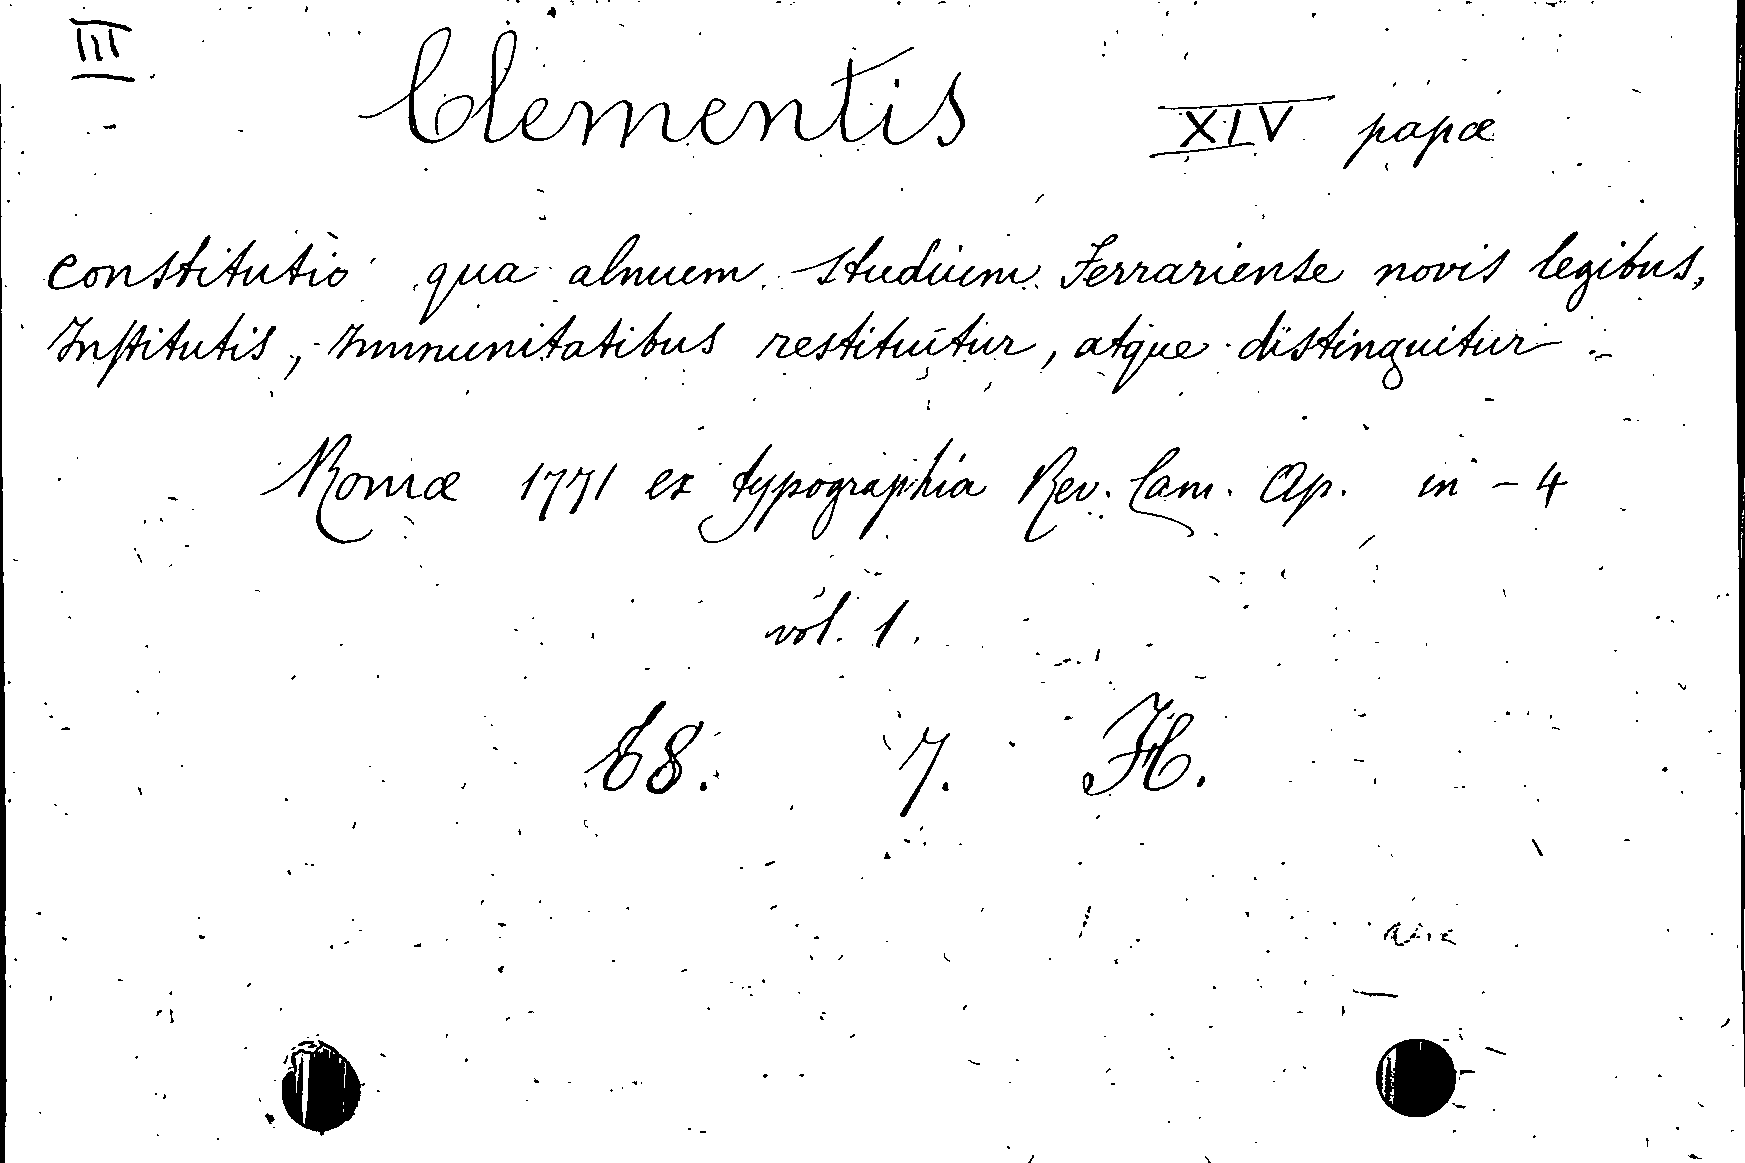 III
Clementis XIV papæ
constitutio qua almum studium Ferrariense novis legibus,
Institutis, Immunitatibus restituitur, atque distinguitur
Romæ 1771 ex typographia Rev. Cam. Ap. in - 4
vol. 1.
68. 7. H.